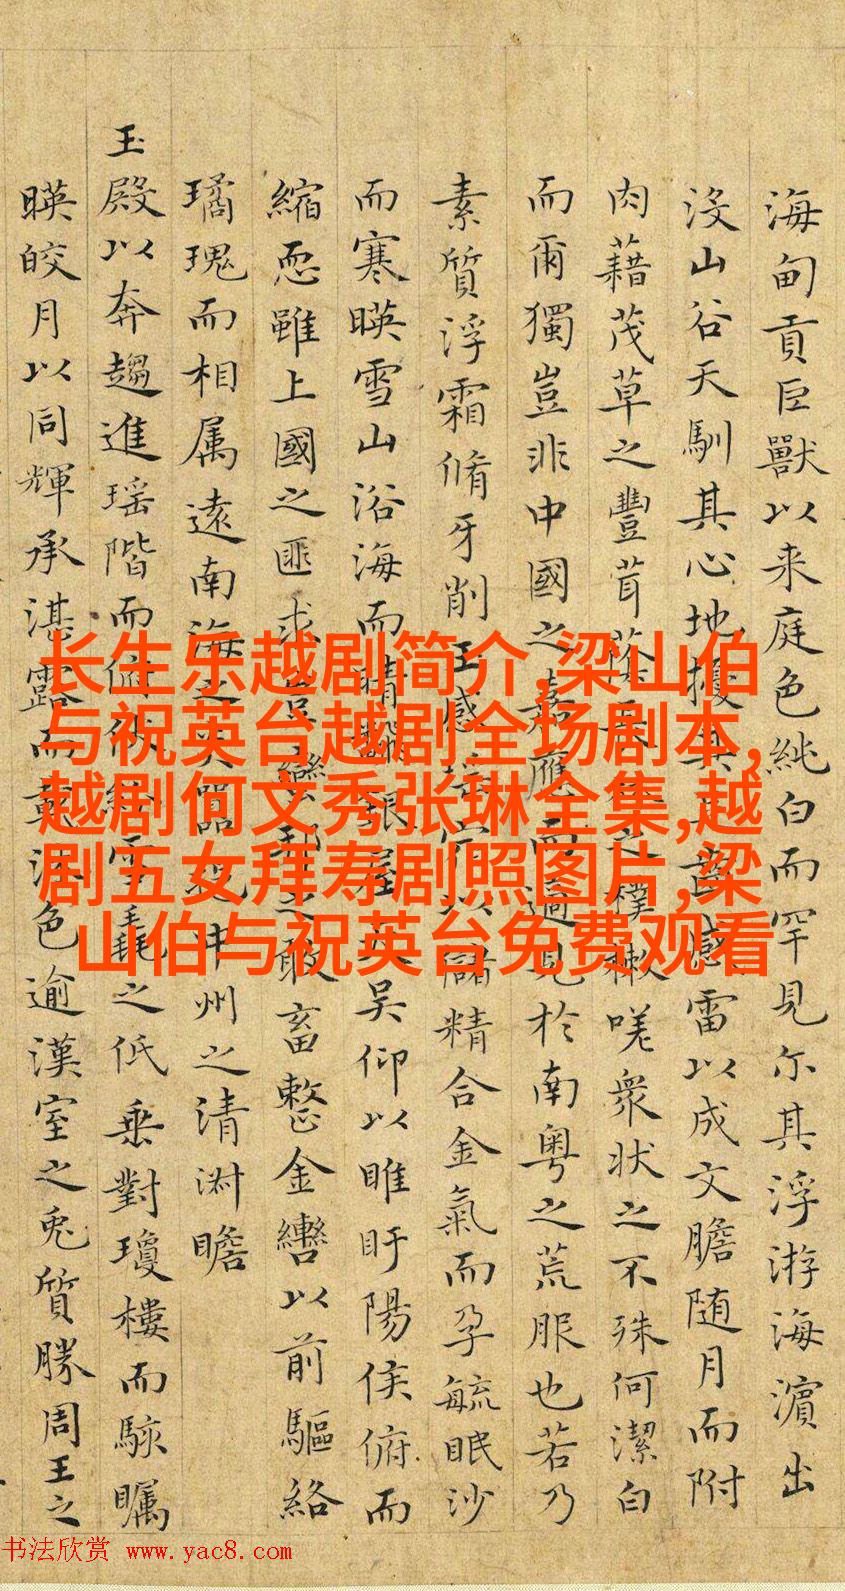 海甸貢巨獸以来庭色純白而罕見尔其浮游海濵出
没山谷天馴其心地擾其感雷以成文膽随月而附
肉藉茂草之豐茸蔭之樸樕嗟衆状之不殊何潔白
而爾獨豈非中國之嘉應而適見於南粤之荒服也若乃
素質浮霜脩牙削玉感以儲精合金氣而孕毓眠沙
而寒暎雪山浴海而晴銀屋吴仰以睢盱陽侯俯而
縮恧雖上國之匪求豈蠻邦之敢畜整金轡以前驅絡
璚瑰而相属遠南海之中州之清渊瞻
玉殿以奔趨進瑶階而俯伏雪毳之低垂對瓊樓而駭矚
暎皎月以同輝承湛露而沐色逾漢室之兎質勝周王之
长生乐越剧简介,梁山伯
与祝英台越剧全场剧本,
越剧何文秀张琳全集,越
剧五女拜寿剧照图片,梁
山伯与祝英台免费观看
书法欣赏 www.yac8.com